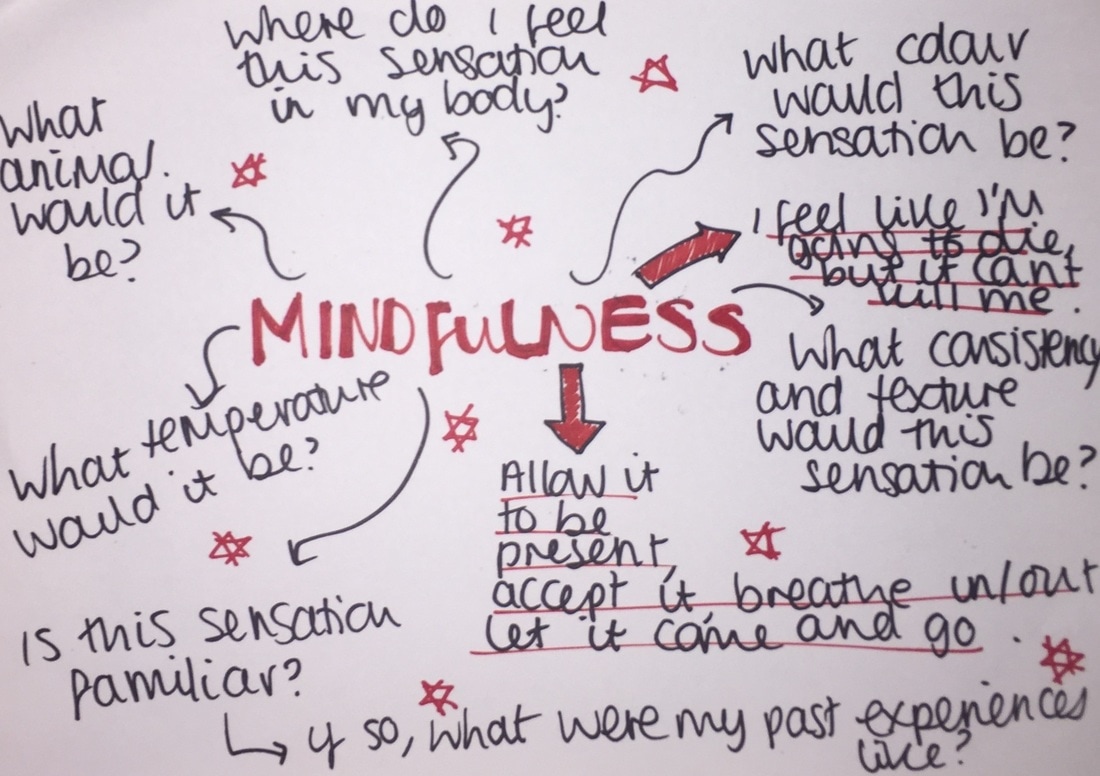 Where do I feel
this sensation
in my body?
What colour
would this
sensation be?
What
animal
would it
be?
I feel like I'm
going to die,
but it can't
kill me.
MINDFULNESS
What consistency
and texture
would this
sensation be?
What temperature
would it be?
Allow it
to be
present,
accept it, breathe in/out
let it come and go.
Is this sensation
familiar?
If so, what were my past experiences
like?